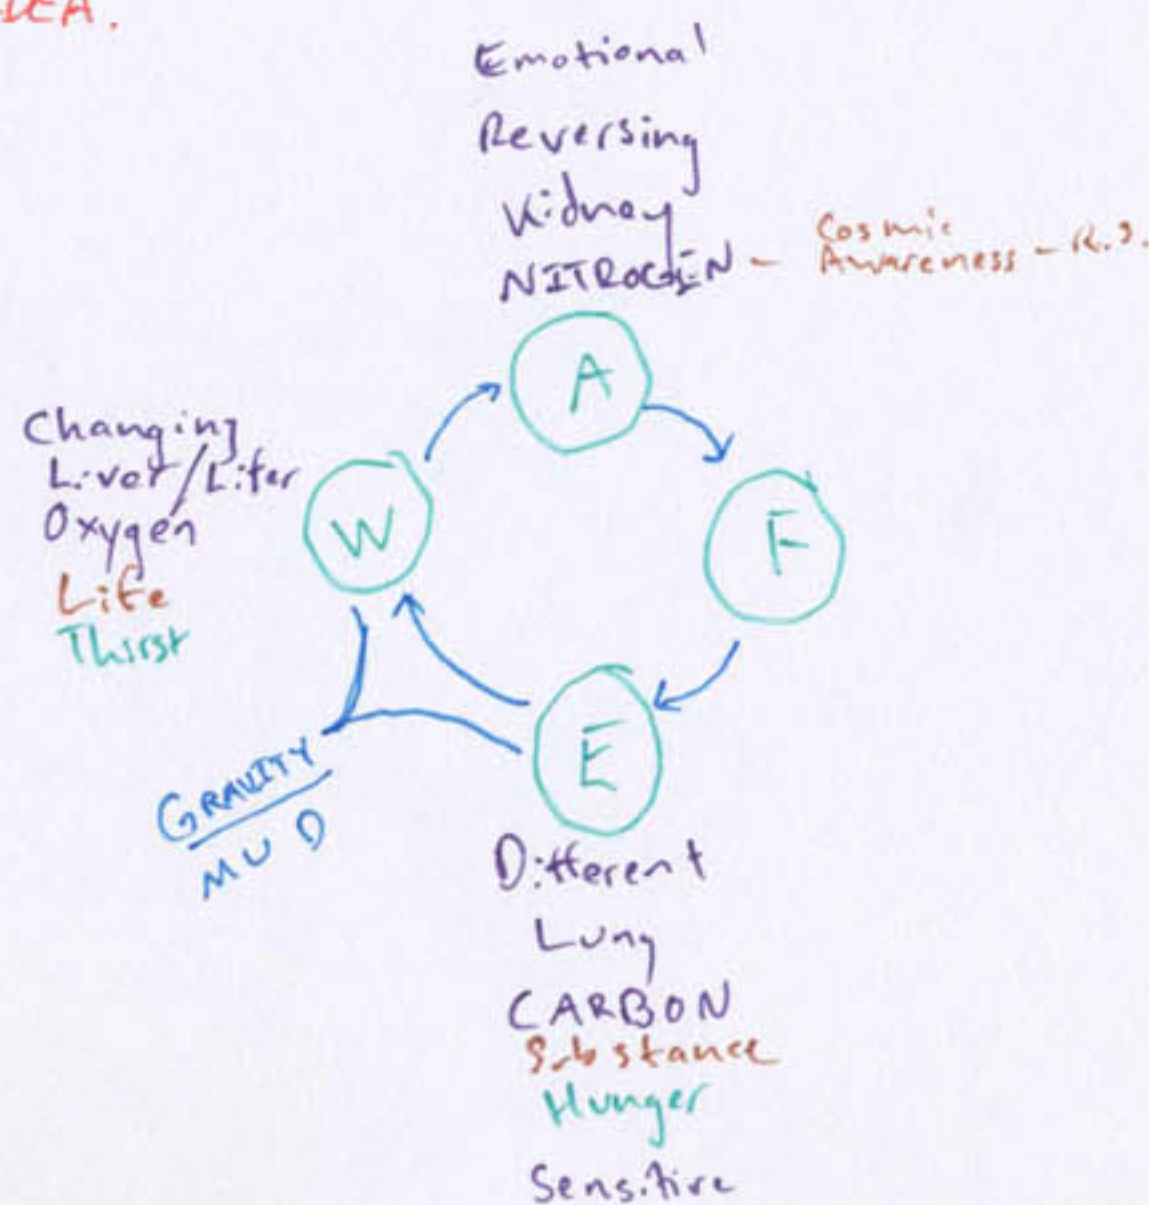 DEA.
Emotional
Reversing
Kidney
NITROGEN - Cosmic
Awareness - R.S.
A
Changing
Liver/Lifer
Oxygen
Life
Thirst
W
F
E
GRAVITY
MUD
Different
Lung
CARBON
Substance
Hunger
Sensitive